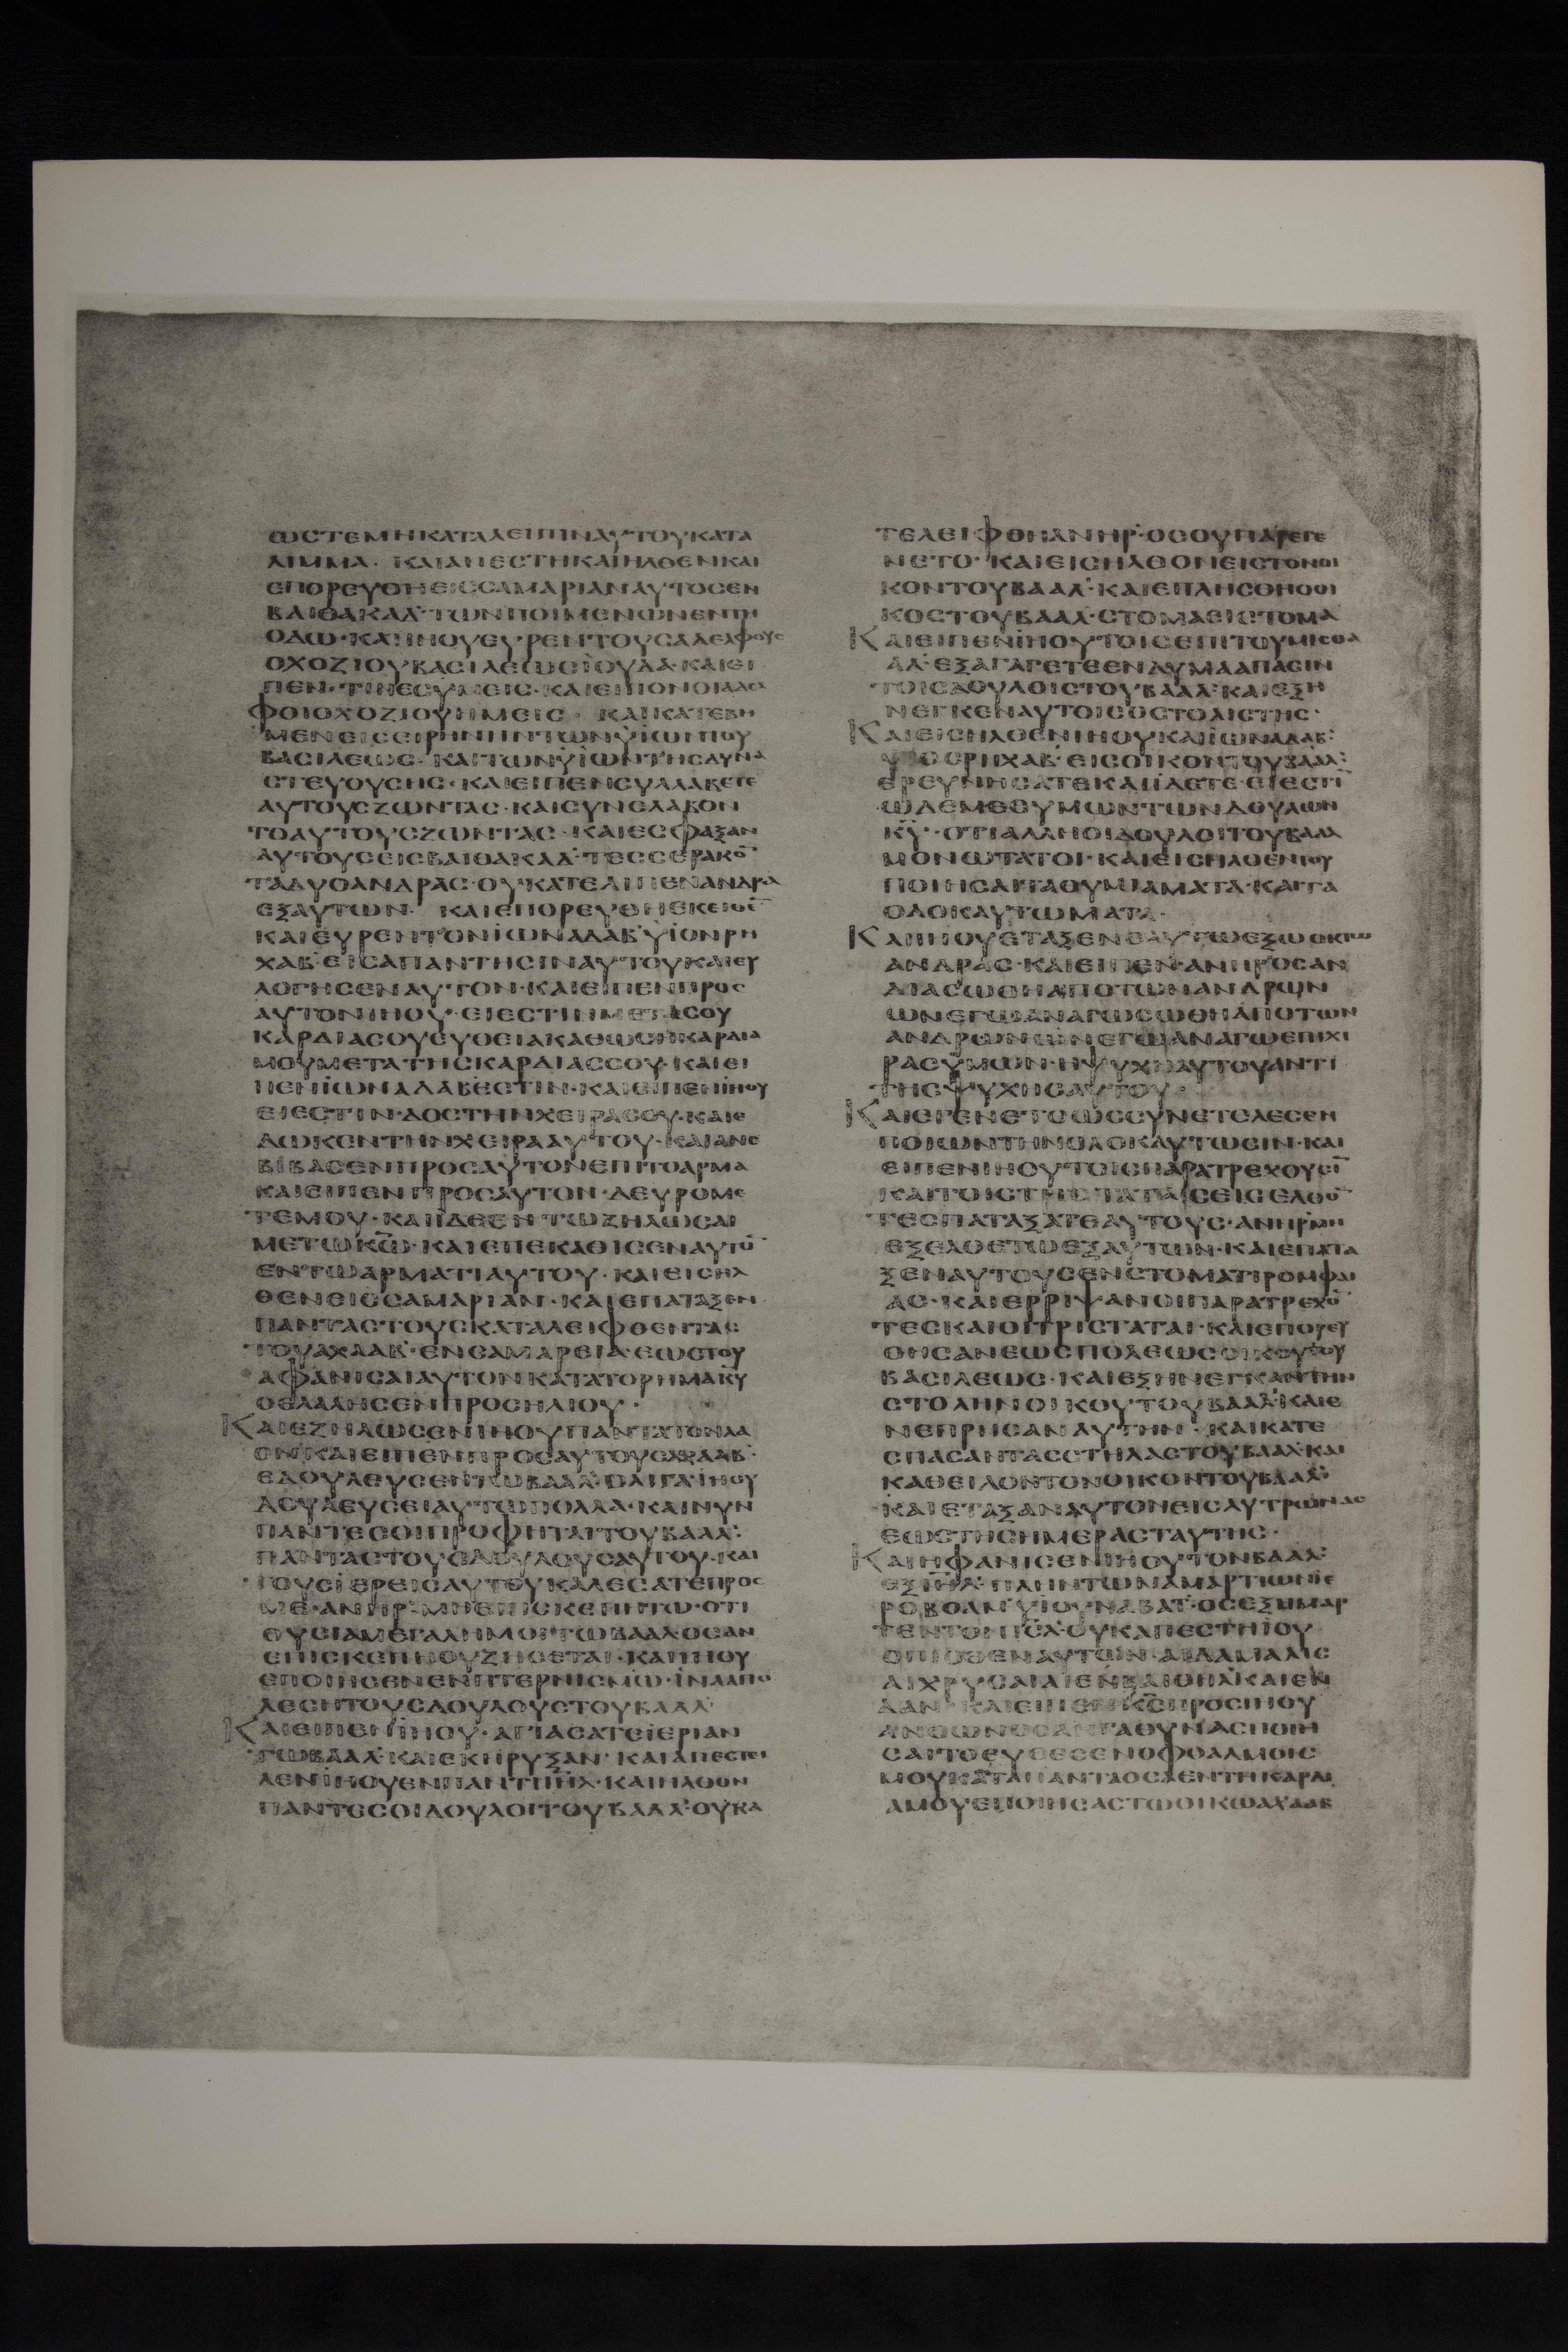 ωϲτεμηκαταλειπιναυτουκατα
λιμμα· καιανεϲτηκαιηλθενκαι
επορευθηειϲϲαμαριαναυτοϲεν
βαιθακαλ·τωνποιμενωνεντη
οδω·καιϊηουευρεντουϲαδελφουϲ
οχοζιουβαϲιλεωϲϊουδα·καιει
πεν·τινεϲϋμειϲ·καιειπονοιαδελ
φοιοχοζιουημειϲ· καικατεβη
μενειϲειρηνηντωνϋϊωντου
βαϲιλεωϲ·καιτωνϋϊωντηϲδυνα
ϲτευουϲηϲ·καιειπενϲυλλαβετε
αυτουϲζωνταϲ·καιϲυνελαβον
τοαυτουϲζωνταϲ·καιεϲφαξαν
αυτουϲειϲβαιθακαδ·τεϲϲερακο̄
ταδυοανδραϲ·ουκατελιπενανδρα
εξαυτων· καιεπορευθηεκειθε̄
καιευρεντονϊωναδαβ·ϋϊονρη
χαβ·ειϲαπαντηϲιναυτουκαιευ
λογηϲεναυτον·καιειπενπροϲ
αυτονϊηου·ειεϲτινμεταϲου
καρδιαϲουευθειακαθωϲηκαρδια
μουμετατηϲκαρδιαϲϲου·καιει
πενϊωναδαβεϲτιν·καιειπενϊηου
ειεϲτιν·δοϲτηνχειραϲου·καιε
δωκεντηνχειρααυτου·καιανε
βιβαϲενπροϲαυτονεπιτοαρμα
καιειπενπροϲαυτον·δευρομε
τεμου·καιϊδεεντωζηλωϲαι
μετωκ̄ω̄·καιεπεκαθιϲεναυτο̄
εντωαρματιαυτου·καιειϲηλ
θενειϲϲαμαριαν·καιεπαταξεν
πανταϲτουϲκαταλειφθενταϲ
τουαχααβ·ενϲαμαρεια·εωϲτου
αφανιϲαιαυτονκατατορημακ̄ῡ
οελαληϲενπροϲηλιου·
Καιεζηλωϲενϊηουπαντατονλα
ονκαιειπενπροϲαυτουϲαχααβ·
εδουλευϲεντωβααλ·ολιγα·ϊηου
δουλευϲειαυτωπολλα·καινυν
παντεϲοιπροφηταιτουβααλ·
πανταϲτουϲδουλουϲαυτου·και
τουϲϊερειϲαυτουκαλεϲατεπροϲ
με·ανηρ·μηεπιϲκεπητω·οτι
θυϲιαμεγαλημοιτωβααλ·οϲαν
επιϲκεπηουζηϲεται·καιϊηου
εποιηϲενενπτερνιϲμω·ϊνααπο
λεϲητουϲδουλουϲτουβααλ·
Καιειπενϊηου·αγιαϲατεϊεριαν
τωβααλ·καιεκηρυξαν·καιαπεϲτει
λενϊηουενπαντιῑη̄λ̄·καιηλθον
παντεϲοιδουλοιτουβααλ·ουκα
τελειφθηανηρ·οϲουπαρεγε
νετο·καιειϲηλθονειϲτονοι
κοντουβααλ·καιεπληϲθηοοι
κοϲτουβααλ·ϲτομαειϲϲτομα
Καιειπενϊηουτοιϲεπιτουμιϲθα
αλ·εξαγαγετεενδυμααπαϲιν
τοιϲδουλοιϲτουβααλ·καιεξη
νεγκεναυτοιϲοϲτολιϲτηϲ·
Καιειϲηλθενϊηουκαιϊωναδαβ·
ϋϊοϲρηχαβ·ειϲοικοντουβααλ·
ερευνηϲατεκαιϊδετε·ειεϲτῑ
ωδεμεθυμωντωνδουλων
κ̄ῡ·οτιαλληοιδουλοιτουβααλ
μονωτατοι·καιειϲηλθεντου
ποιηϲαιταθυμιαματα·καιτα
ολοκαυτωματα·
Καιϊηουεταξενεαυτωεξωοκτω
ανδραϲ·καιειπεν·ανηροϲαν
διαϲωθηαποτωνανδρων
ωνεγωαναγωϲωθηαποτων
ανδρωνωνεγωαναγωεπιχι
ραϲϋμων·ηψυχηαυτουαντι
τηϲψυχηϲαυτου·
Καιεγενετοωϲϲυνετελεϲεν
ποιωντηνολοκαυτωϲιν·και
ειπενϊηουτοιϲπαρατρεχουϲῑ
καιτοιϲτριϲταταιϲειϲελθο̄
τεϲπαταξατεαυτουϲ·ανηρμη
εξελθετωεξαυτων·καιεπατα
ξεναυτουϲενϲτοματιρομφαι
αϲ·καιερριψανοιπαρατρεχο̄
τεϲκαιοιτριϲταται·καιεπορευ
θηϲανεωϲπολεωϲοικουτου
βαϲιλεωϲ·καιεξηνεγκαντην
ϲτοληνοικουτουβααλ·καιε
νεπρηϲαναυτην·καικατε
ϲπαϲανταϲϲτηλαϲτουβααλ·και
καθειλοντονοικοντουβααλ·
καιεταξαναυτονειϲλυτρωναϲ
εωϲτηϲημεραϲταυτηϲ·
Καιηφανιϲενϊηουτονβααλ·
εξῑη̄λ̄·πληντωναμαρτιωνϊε
ροβοαμ·ϋϊου·ναβατ·οϲεξημαρ
τεντονῑη̄λ̄·ουκαπεϲτηϊου
οπιϲθεναυτων·αιδαμαλιϲ
αιχρυϲαιαιενβαιθηλκαιεν
δαν·καιειπενκ̄ϲ̄προϲϊηου
ανθωνοϲαηγαθυναϲποιη
ϲαιτοευθεϲενοφθαλμοιϲ
μουκαταπανταοϲαεντηκαρδι
αμουεποιηϲαϲτωοικωαχααβ